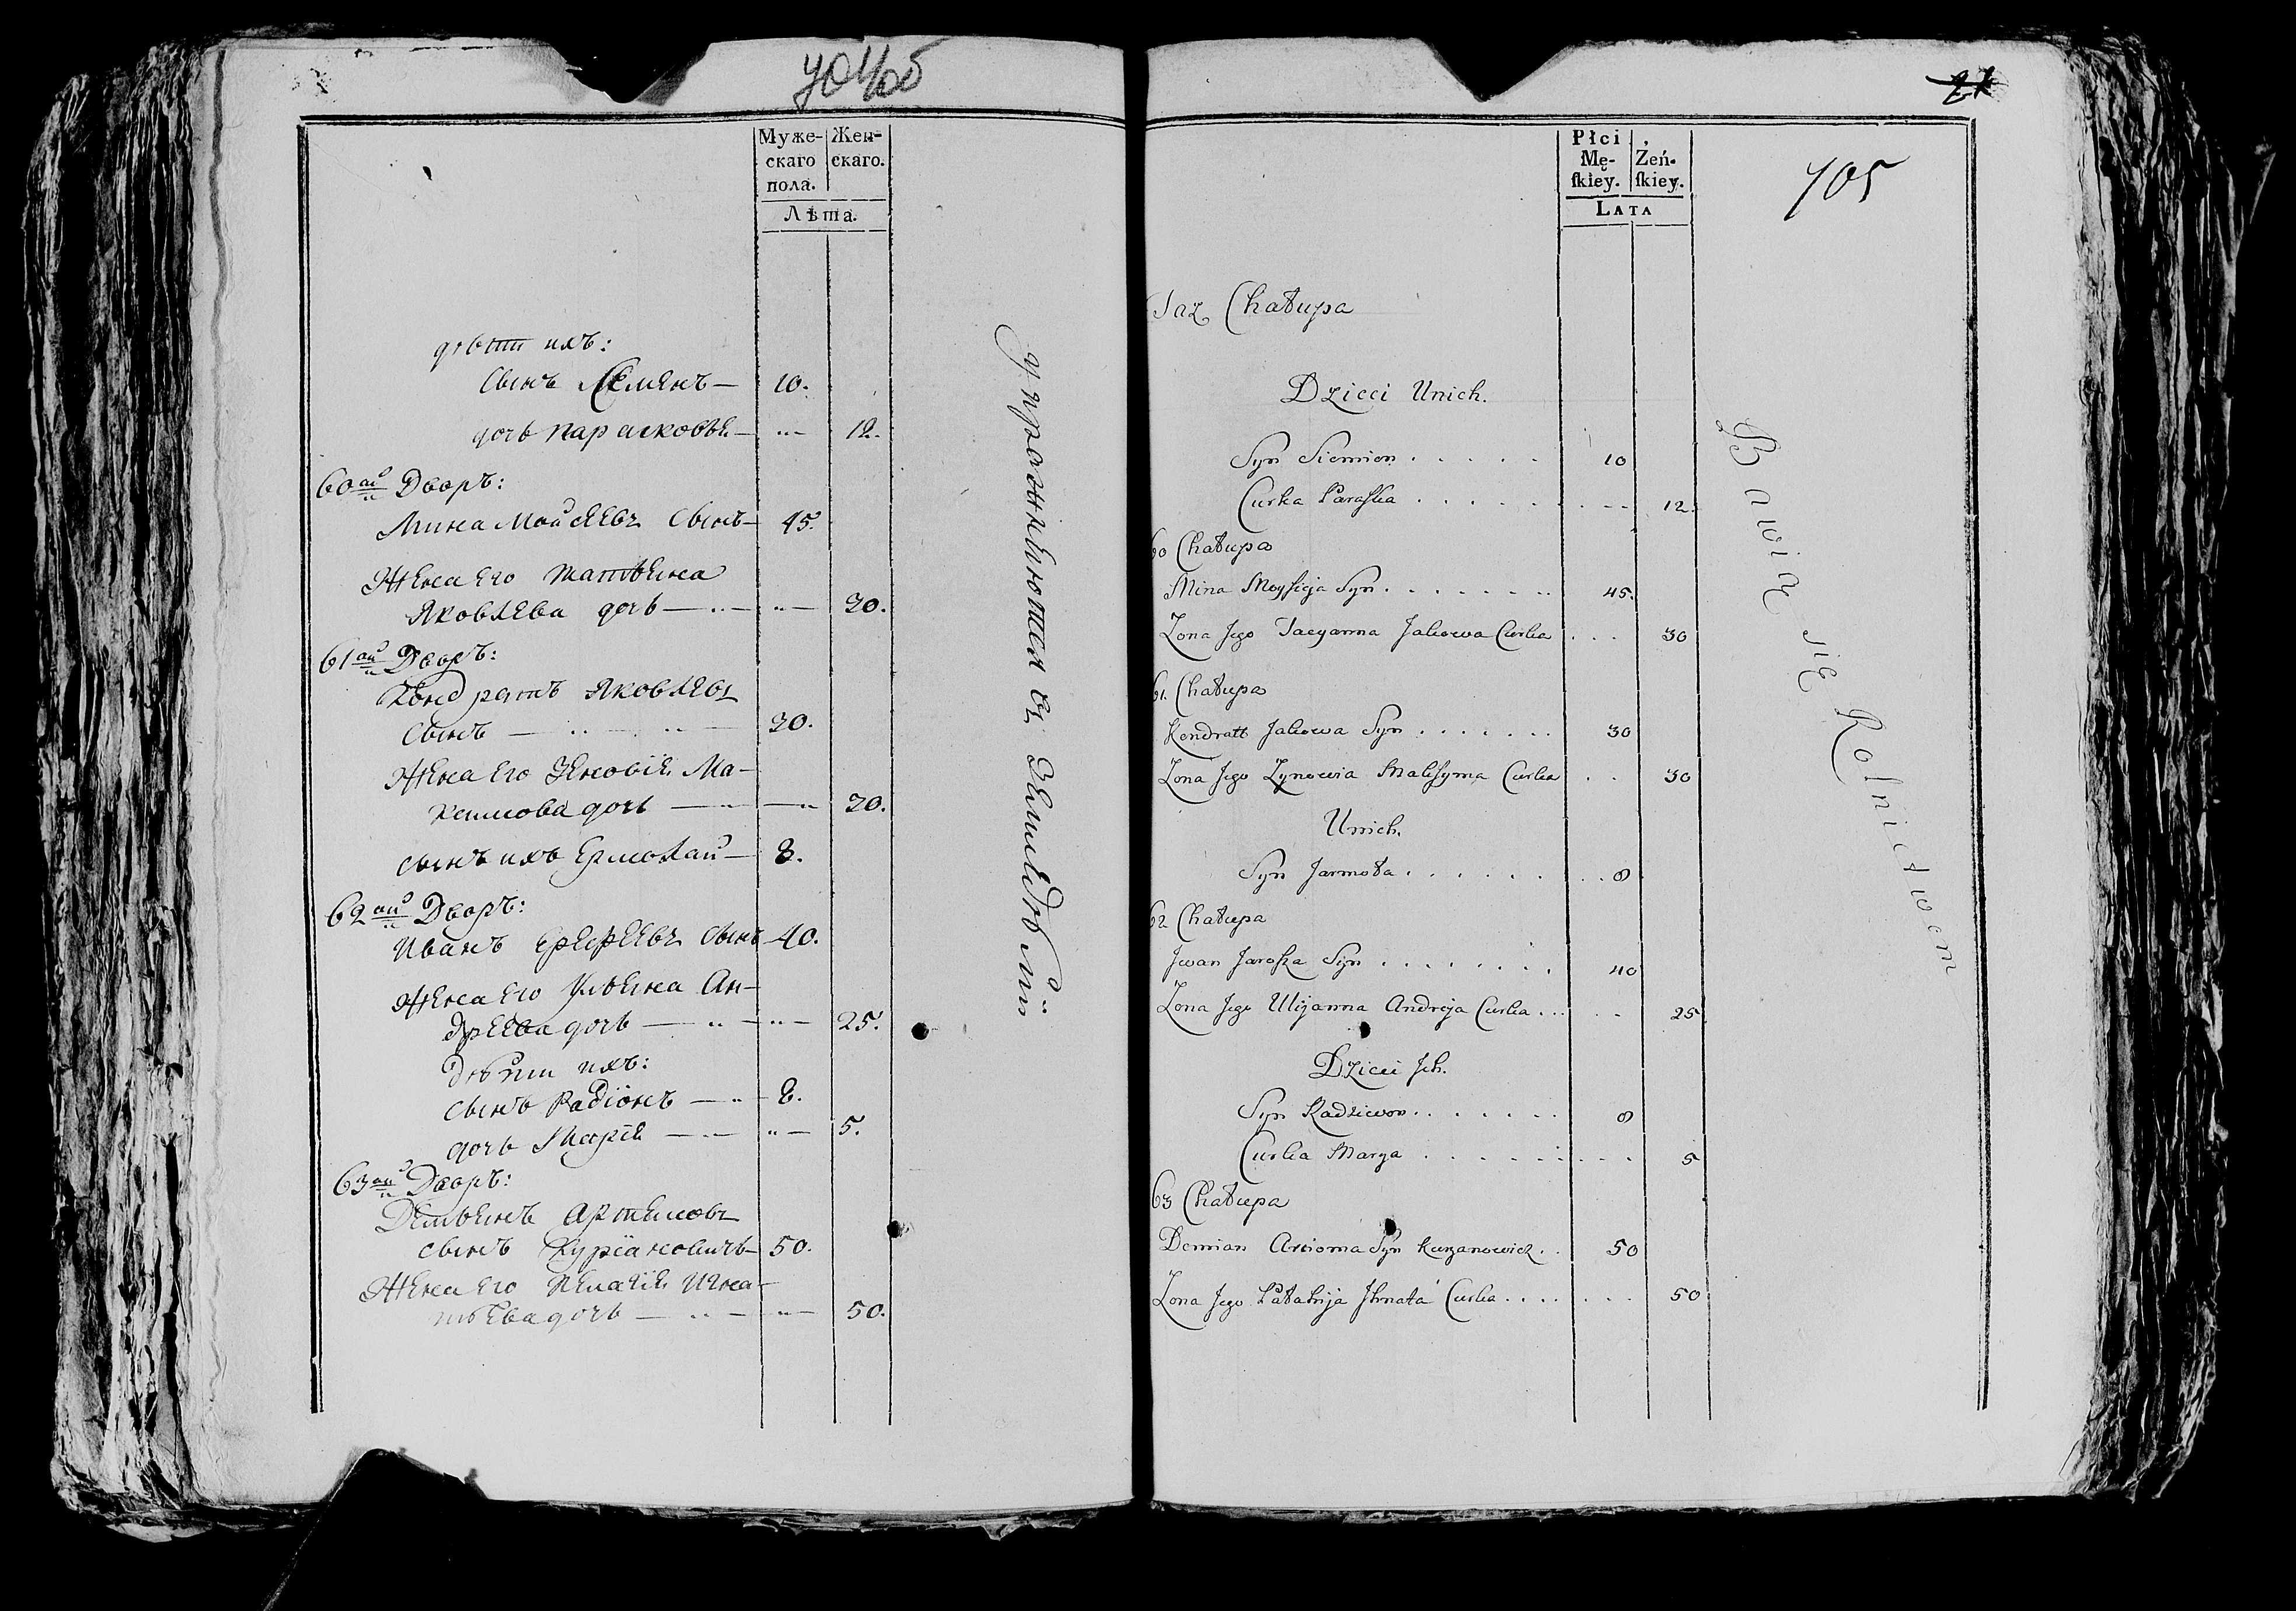 Муже-
скаго
пола.
Жен-
скаго.
Лѣта.
дѣти ихъ:
сынъ Семенъ — 10.
дочь парасковья — „ — 12.
60ай Дворъ:
Мина Мойсеевъ сынъ — 45.
Жена его татьяна
Яковлева дочь — „ — „ — 30.
61ай Дворъ:
Кондратъ Яковлевъ
сынъ — „ — „ — 30.
Жена его Зеновія Ма-
ксимова дочь — „ — „ 30.
сынъ ихъ Ермолай — 8.
62ай Дворъ:
Иванъ Ерефеевъ сынъ 40.
Жена его Ульяна Ан-
дреева дочь — „ — „ — 25.
дѣти ихъ:
сынъ Радіонъ — „ — 8.
дочь Марія — „ — „ — 5.
63ай Дворъ:
Демьянъ Артемовъ
сынъ Куріановичъ — 50.
Жена его Пелагія Игна-
тьева дочь — „ — „ — 50.
упражняются въ земледѣліи
21
705
Płci
Mę-
ſkiey.
Żeń-
ſkiey.
LATA
Taz Chałupa
Dzieci Unich.
Syn Siemion . . . . . 10
Curka Paraſka . . . . . 12.
60 Chałupa
Mina Moyſieja Syn . . . . . . . 45.
Zona Jego Tacyanna Jakowa Curka . . . 30
61. Chałupa
Kondratt Jakowa Syn . . . . . . . 30
Zona Jego Zynowia Makſyma Curka . . 30
Unich.
Syn Jarmoła . . . . . . . . 8
62 Chałupa
Jwan Jaroſza Syn . . . . . . . . 40
Zona Jego Ulijanna Andreja Curka . . . . . 25
Dzieci Jch.
Syn Radziwon . . . . . . 8
Curka Marya . . . . . . . . . . 5
63 Chałupa
Demian Arcioma Syn Kurzanowicz . . 50
Zona Jego Pałahija Jhnata Curka . . . . . . . 50
Bawią się Rolnictwem